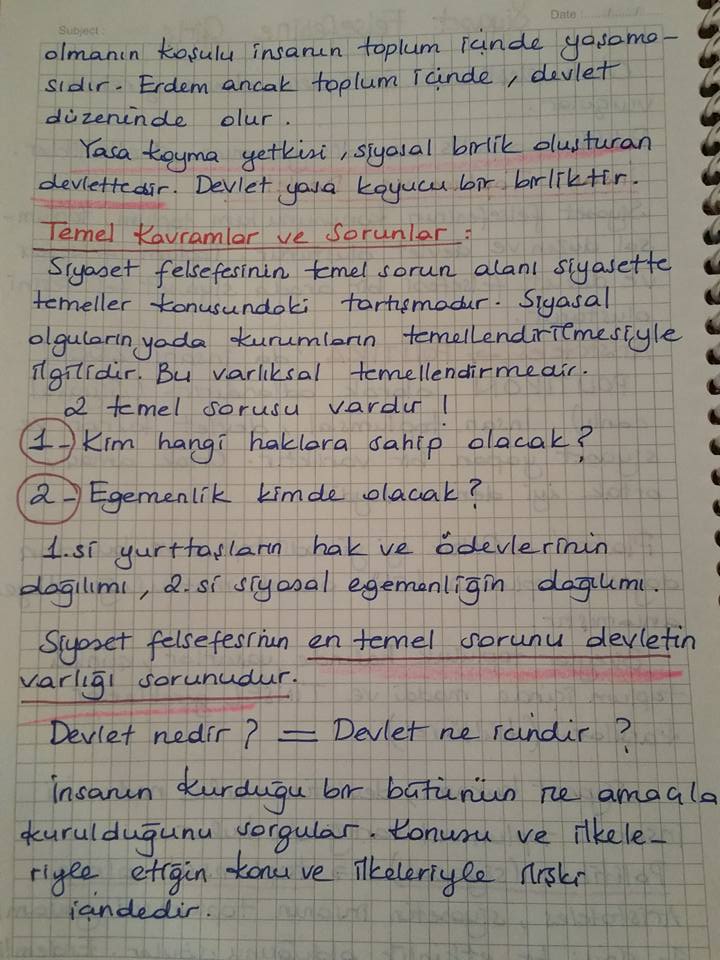 Subject :
Date : ....../....../......
olmanın koşulu insanın toplum içinde yaşama-
sıdır. Erdem ancak toplum içinde, devlet
düzeninde olur.
Yasa koyma yetkisi, siyasal birlik oluşturan
devlettedir. Devlet yasa koyucu bir birliktir.
Temel Kavramlar ve Sorunlar :
Siyaset felsefesinin temel sorun alanı siyasette
temeller konusundaki tartışmadır. Siyasal
olguların yada kurumların temellendirilmesiyle
ilgilidir. Bu varlıksal temellendirmedir.
2 temel sorusu vardır !
1 - Kim hangi haklara sahip olacak ?
2 - Egemenlik kimde olacak ?
1.si yurttaşların hak ve ödevlerinin
dağılımı, 2.si siyasal egemenliğin dağılımı.
Siyaset felsefesinin en temel sorunu devletin
varlığı sorunudur.
Devlet nedir ? = Devlet ne içindir ?
İnsanın kurduğu bir bütünün ne amaçla
kurulduğunu sorgular. Konusu ve ilkele-
riyle etiğin konu ve ilkeleriyle ilişki
içindedir.